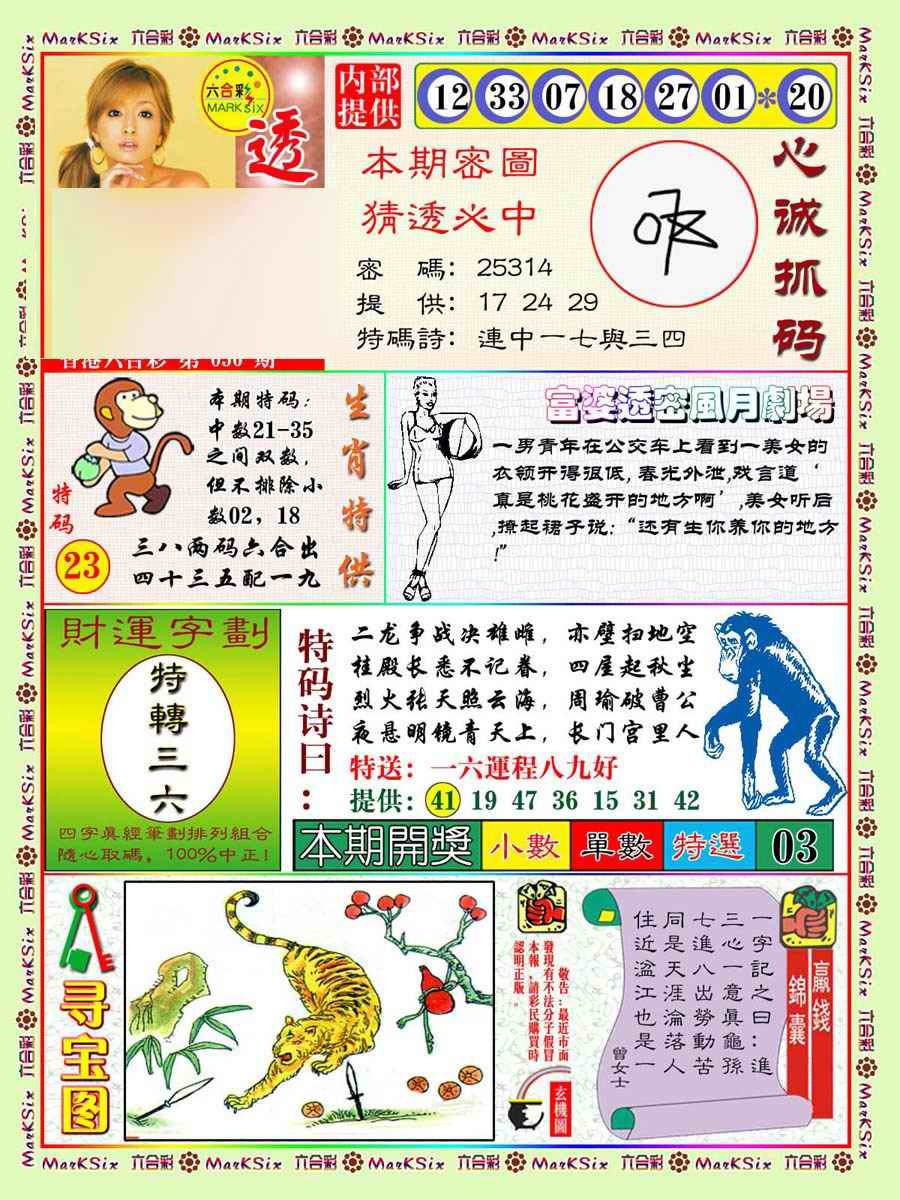 MarKSix 六合彩 MarKSix 六合彩 MarKSix 六合彩 MarKSix 六合彩 MarKSix 六合彩
六合彩
MARK six
透
内部
提供
12 33 07 18 27 01 * 20
本期密圖
猜透必中
密　碼：25314
提　供：17 24 29
特碼詩：連中一七與三四
心诚抓码
香港六合彩 第 090 期
特码
23
本期特码：
中数21-35
之间双数，
但不排除小
数02，18
三八两码六合出
四十三五配一九
生肖特供
富婆透密風月劇場
一男青年在公交车上看到一美女的
衣领开得很低, 春光外泄,戏言道‘
真是桃花盛开的地方啊’,美女听后
,撩起裙子说:“还有生你养你的地方
!”
財運字劃
特轉三六
四字真經筆劃排列組合
隨心取碼，100%中正!
特码诗曰：
二龙争战决雄雌，赤壁扫地空
桂殿长悉不记春，四屋起秋尘
烈火张天照云海，周瑜破曹公
夜悬明镜青天上，长门宫里人
特送：一六運程八九好
提供：41 19 47 36 15 31 42
本期開獎 小數 單數 特選 03
寻宝图
敬告:最近市面
發現有不法分子假冒
本報,請彩民購買時
認明正版。
玄機圖
一字記之曰：進
三心一意真龜孫
七進八出勞動苦
同是天涯淪落人
住近湓江也是一
曾女士
贏錢
錦囊
MarKSix 六合彩 MarKSix 六合彩 MarKSix 六合彩 MarKSix 六合彩 MarKSix 六合彩